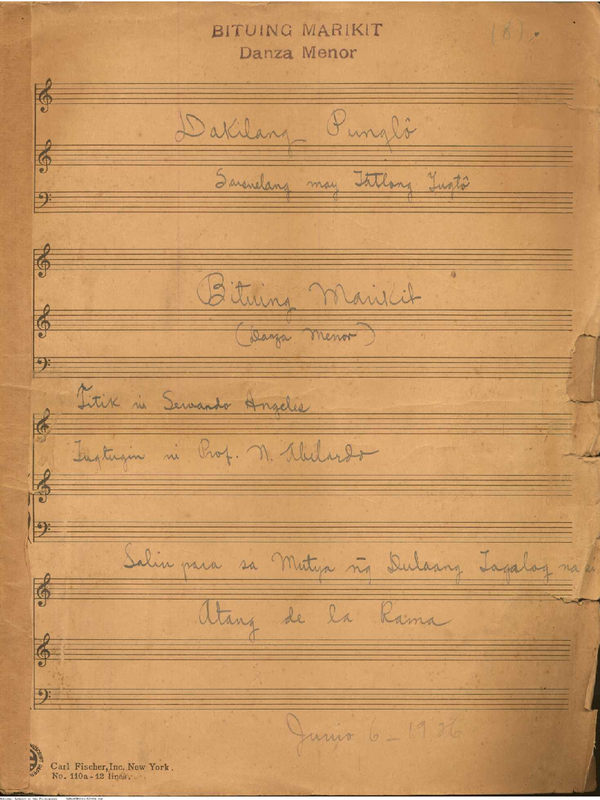 BITUING MARIKIT
Danza Menor
Dakilang Punglô
Sarsuelang may Tatlong Yugtô
Bituing Marikit
(Danza Menor)
Titik ni Servando Angeles
Tugtugin ni Prof. N. Abelardo
Salin para sa Mutya n͠g Dulaang Tagalog na si
Atang de la Rama
Junio 6 - 1926
Carl Fischer, Inc. New York.
No. 110a - 12 lines.